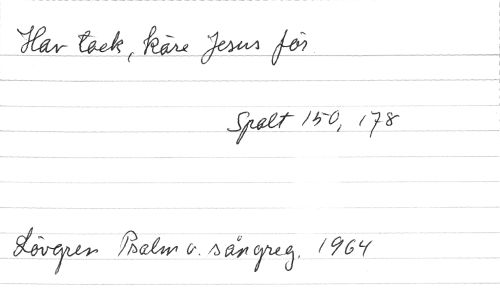 Hav tack, käre Jesus för
Spalt 150, 178
Lövgren Psalm o. sångreg. 1964